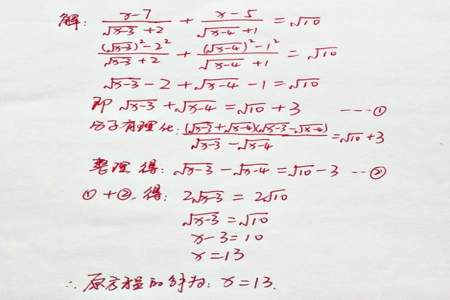 解: (x-7)/(√(x-3)+2) + (x-5)/(√(x-4)+1) = √10
((√(x-3))²-2²)/(√(x-3)+2) + ((√(x-4))²-1²)/(√(x-4)+1) = √10
√(x-3) - 2 + √(x-4) - 1 = √10
即 √(x-3) + √(x-4) = √10 + 3 ----①
分子有理化: (√(x-3)+√(x-4))(√(x-3)-√(x-4))/(√(x-3)-√(x-4)) = √10+3
整理得: √(x-3) - √(x-4) = √10 - 3 --②
①+②, 得: 2√(x-3) = 2√10
√(x-3) = √10
x-3 = 10
x = 13
∴ 原方程的解为: x = 13.